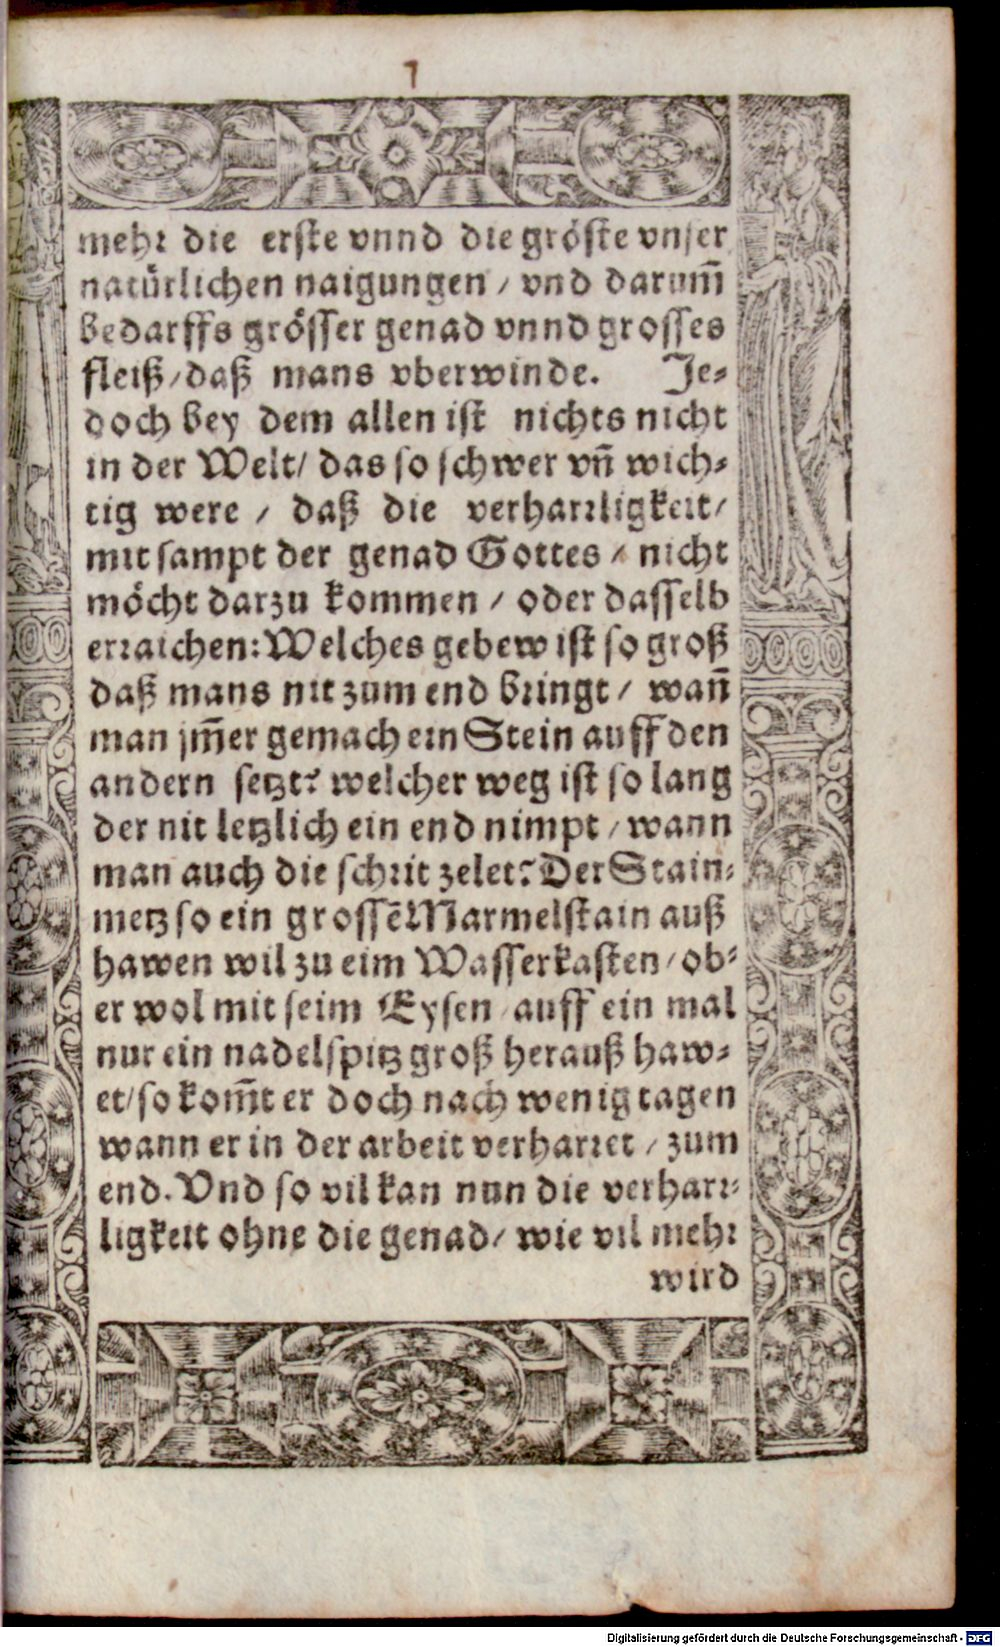 7
mehr die erste vnnd die gröste vnser
natürlichen naigungen / vnd darum̃
bedarffs grösser genad vnnd grosses
fleiß / daß mans vberwinde. Je-
doch bey dem allen ist nichts nicht
in der Welt / das so schwer vñ wich-
tig were / daß die verharrligkeit /
mit sampt der genad Gottes / nicht
möcht darzu kommen / oder dasselb
erraichen: Welches gebew ist so groß
daß mans nit zum end bringt / wañ
man jm̃er gemach ein Stein auff den
andern setzt? welcher weg ist so lang
der nit letzlich ein end nimpt / wann
man auch die schrit zelet? Der Stain-
metz so ein grossẽ Marmelstain auß
hawen wil zu eim Wasserkasten / ob-
er wol mit seim Eysen auff ein mal
nur ein nadelspitz groß herauß haw-
et / so kom̃t er doch nach wenig tagen
wann er in der arbeit verharret / zum
end. Vnd so vil kan nun die verharr-
ligkeit ohne die genad / wie vil mehr
wird
Digitalisierung gefördert durch die Deutsche Forschungsgemeinschaft - DFG